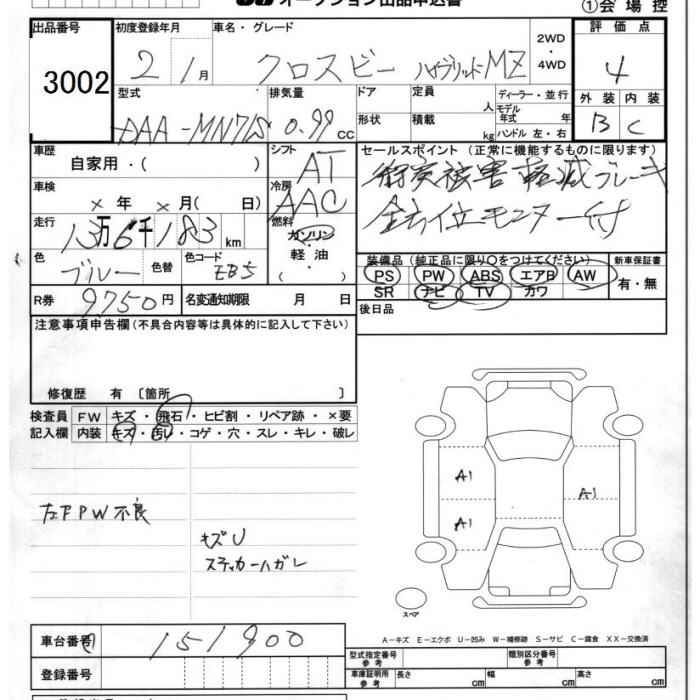 オークション出品申込書
①会場控
出品番号 初度登録年月 車名・グレード 2WD・4WD 評価点
3002 2 1月 クロスビー ハイブリッドMZ 4
型式 排気量 ドア 定員 人 ディーラー・並行 外装 内装
DAA-MN71S 0.99 CC 形状 積載 kg モデル年式 年 ハンドル 左・右 B C
車歴 自家用・( ) シフト AT セールスポイント (正常に機能するものに限ります)
冷房 AAC 衝突被害軽減ブレーキ
車検 ×年 ×月( 日) 全方位モニター付
走行 13万6千183km 燃料 ガソリン・軽油・( )
色 ブルー 色替 色コード 装備品 (純正品に限り○をつけてください。) 新車保証書
PS PW ABS エアB AW 有・無
SR ナビ TV カワ
R券 9750円 名変通知期限 月 日 後日品
注意事項申告欄(不具合内容等は具体的に記入して下さい)
修復歴 有 〔箇所 〕
検査員 FW キズ・飛石・ヒビ割・リペア跡・×要
記入欄 内装 キズ・汚レ・コゲ・穴・スレ・キレ・破レ
A1
A1
A1
左FPW不良
キズU
ステッカーハガレ
スペア
A-キズ E-エクボ U-凹み W-補修跡 S-サビ C-腐食 XX-交換済
車台番号 151900
型式指定番号 参考 類別区分番号 参考
登録番号 車庫証明用 参考 長さ cm 幅 cm 高さ cm